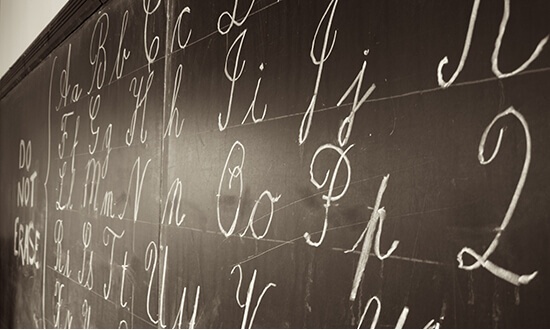 DO
NOT
ERASE
A a B b C c
F f G g H h I i J j
L l M m N n O o P p Q
R r S s T t U u V v